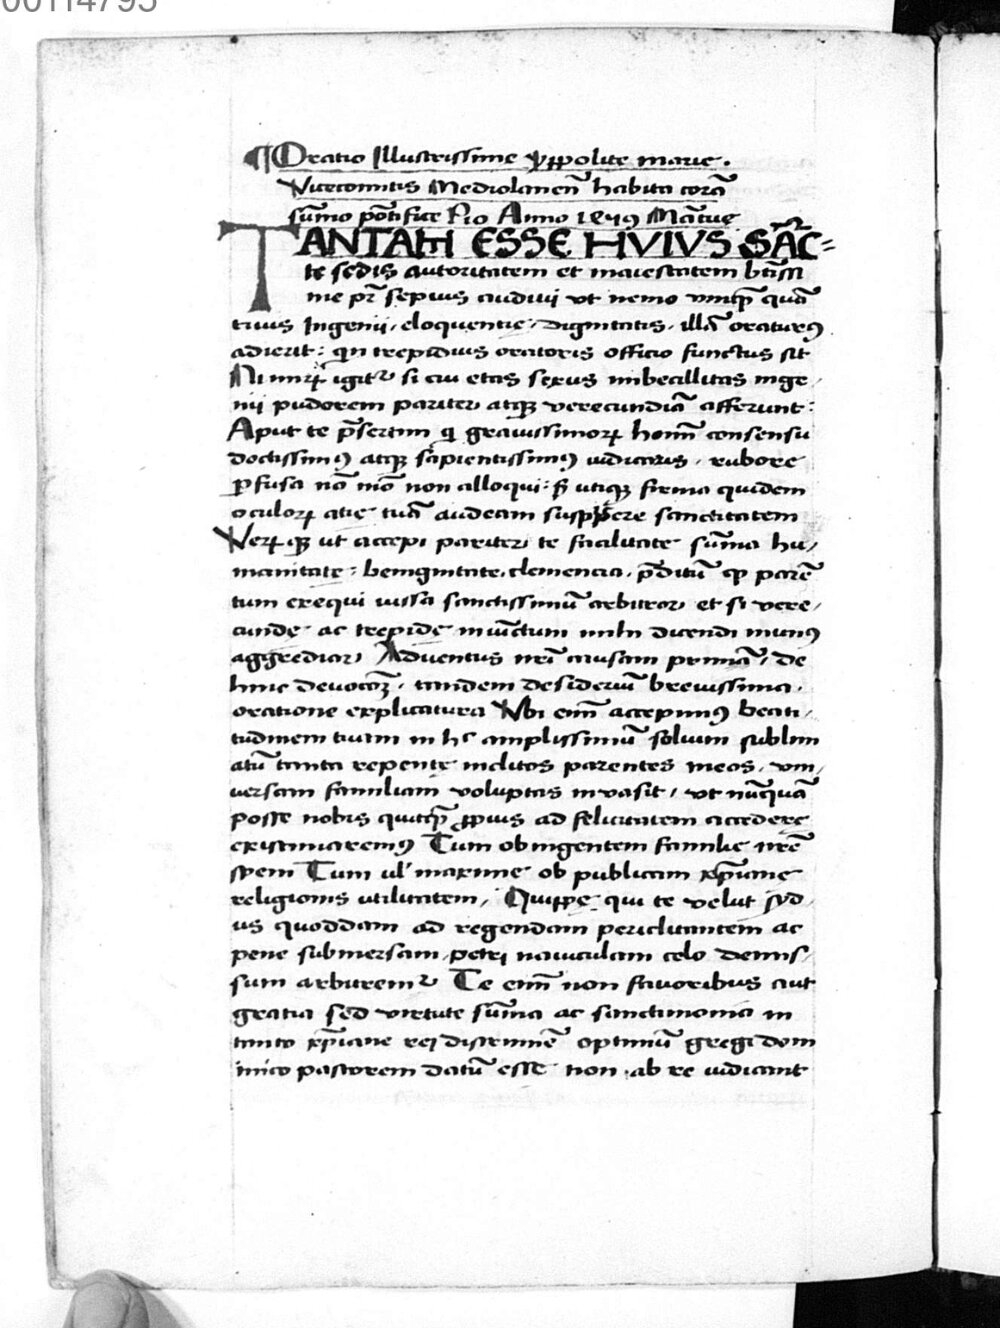 00114795
¶ Oratio Illustrissime ypolite marie.
Vicecomitis Mediolanen̄ habita corā
sūmo pōtifice Pio Anno 1459 Mātue
TANTAM ESSE HVIVS SĀC=
te sedis autoritatem et maiestatem btīssi
me pr̄ sepius audiui vt nemo vmq̄ quā
tiuis Ingenii, eloquentie, dignitatis, illā oraturꝯ
adierit: qn trepidius oratoris officio functus sit
Ni mirꝝ igitᷣ si cui etas sexus imbecillitas inge,
nij pudorem pariter atqꝫ verecundiā afferunt:
Aput te p̄sertim q grauissimorꝝ homīn consensu
doctissimꝯ atqꝫ sapientissimꝯ iudicaris, rubore
ꝑfusa nō mō non alloqui: s̄ utiqꝫ firma quidem
oculorꝝ acie tuā audeam suspicere sanctitatem
Verꝝ qꝫ ut accepi pariter te facilitate sūma hu,
manitate, benignitate, clemencia, p̄ditū qꝫ parē
tum exequi iussa sanctissimū arbitror, et si vere,
cunde ac trepide iniūctum mihi dicendi munꝯ
aggrediar, Aduentus nr̄i causam primā, de
hinc deuocōꝫ, tandem desideriū breuissima,
oratione explicatura Vbi enī accepimꝯ beati,
tudinem tuam in hᶜ amplissimū solium sublim
atū tanta repente inclitos parentes meos, vni,
uersam familiam voluptas inuasit, vt nūquā
posse nobis quicq̄ ꝓpius ad felicitatem accedere
existimaremꝯ Tum ob ingentem familie nr̄e
spem Tum ul' maxime ob publicam xp̄iane
religionis utilitatem, Quippe qui te velut syd,
us quoddam ad regendam periclitantem ac
pene submersam petri nauiculam celo demis,
sum arbitremᷣ Te enī non fauoribus aut
gratia sed virtute sūma ac sanctimonia in
tanto xp̄iane rei discrimīe optimū gregi dom
inico pastorem datū esse non ab re iudicant